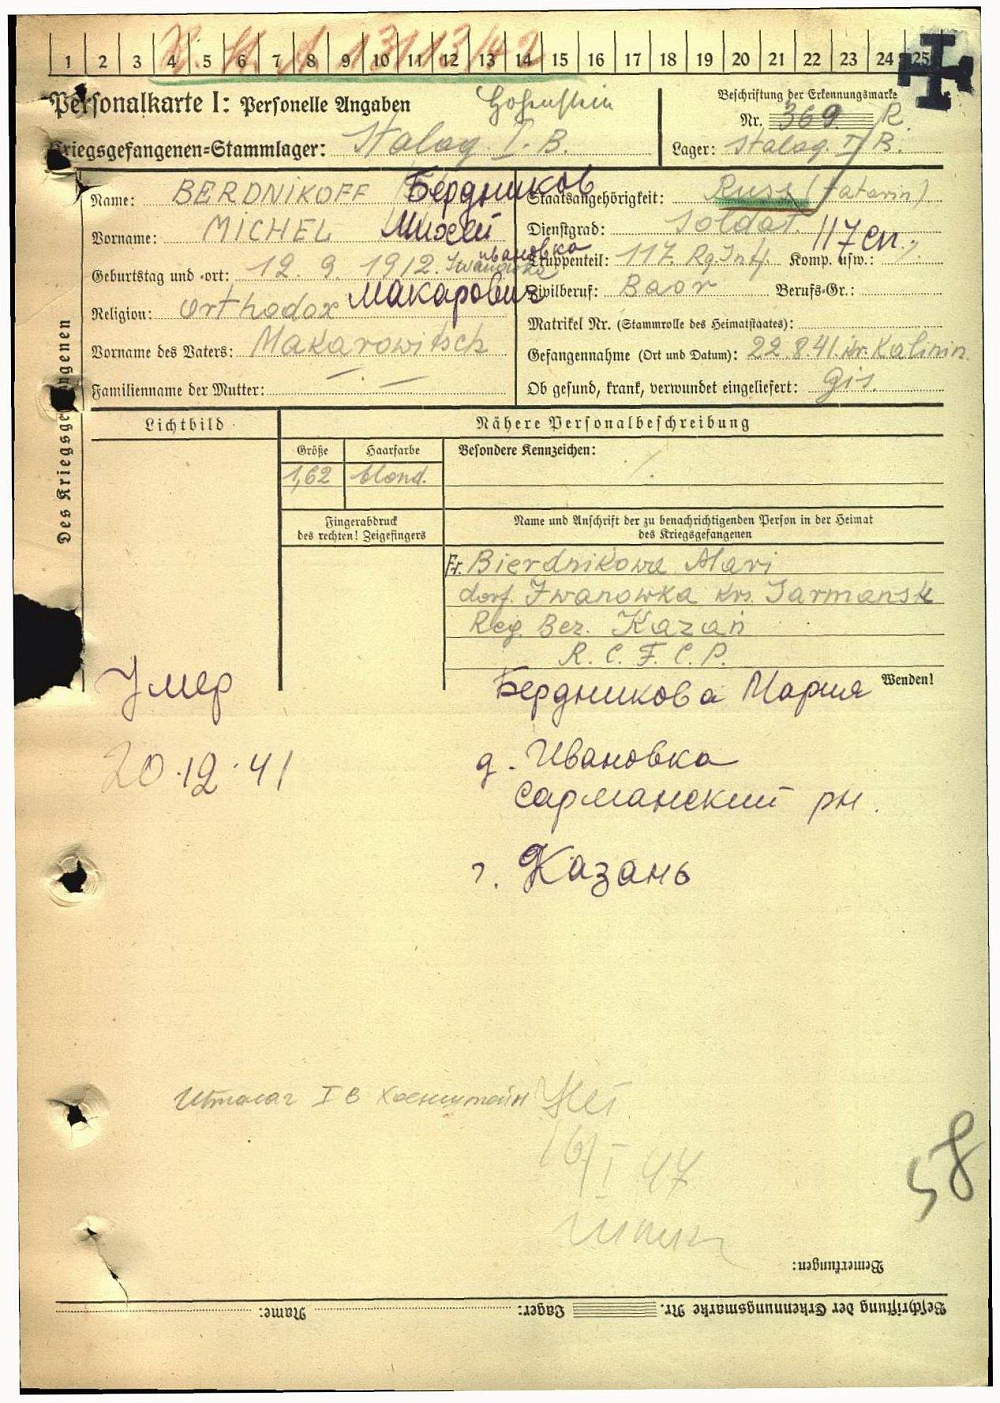 1 2 3 4 5 6 7 8 9 10 11 12 13 14 15 16 17 18 19 20 21 22 23 24 25
Personalkarte I: Personelle Angaben
Hohenstein
Beschriftung der Erkennungsmarke
Nr. 369 R
Kriegsgefangenen-Stammlager: Stalag I. B.
Lager: Stalag I B.
Des Kriegsgefangenen
Name: BERDNIKOFF Бердников
Staatsangehörigkeit: Russ (tatarin)
Vorname: MICHEL Михей
Dienstgrad: Soldat.
117 сп.
Ивановка
Geburtstag und -ort: 12. 9. 1912. Iwanowka
Truppenteil: 117. Rg. Inf. Komp. usw.:
Макарович
Religion: Orthodox
Zivilberuf: Baor Berufs-Gr.:
Matrikel Nr. (Stammrolle des Heimatstaates):
Vorname des Vaters: Makarowitsch
Gefangennahme (Ort und Datum): 22.8.41 Kalinin.
Familienname der Mutter: - . -
Ob gesund, krank, verwundet eingeliefert: gis.
Lichtbild
Nähere Personalbeschreibung
Größe Haarfarbe
Besondere Kennzeichen: /.
1,62 blond.
Fingerabdruck
des rechten! Zeigefingers
Name und Anschrift der zu benachrichtigenden Person in der Heimat
des Kriegsgefangenen
Fr. Bierdnikowa Mari
dorf. Iwanowka krs. Sarmansk
Reg. Bez. Kazań
R. C. F. C. P.
Wenden!
Умер
Бердникова Мария
20.12.41
д. Ивановка
Сарманский рн.
г. Казань
Шталаг I В Хоенштейн
16/I 47
58
Bemerkungen:
Beschriftung der Erkennungsmarke Nr. Lager: Name: